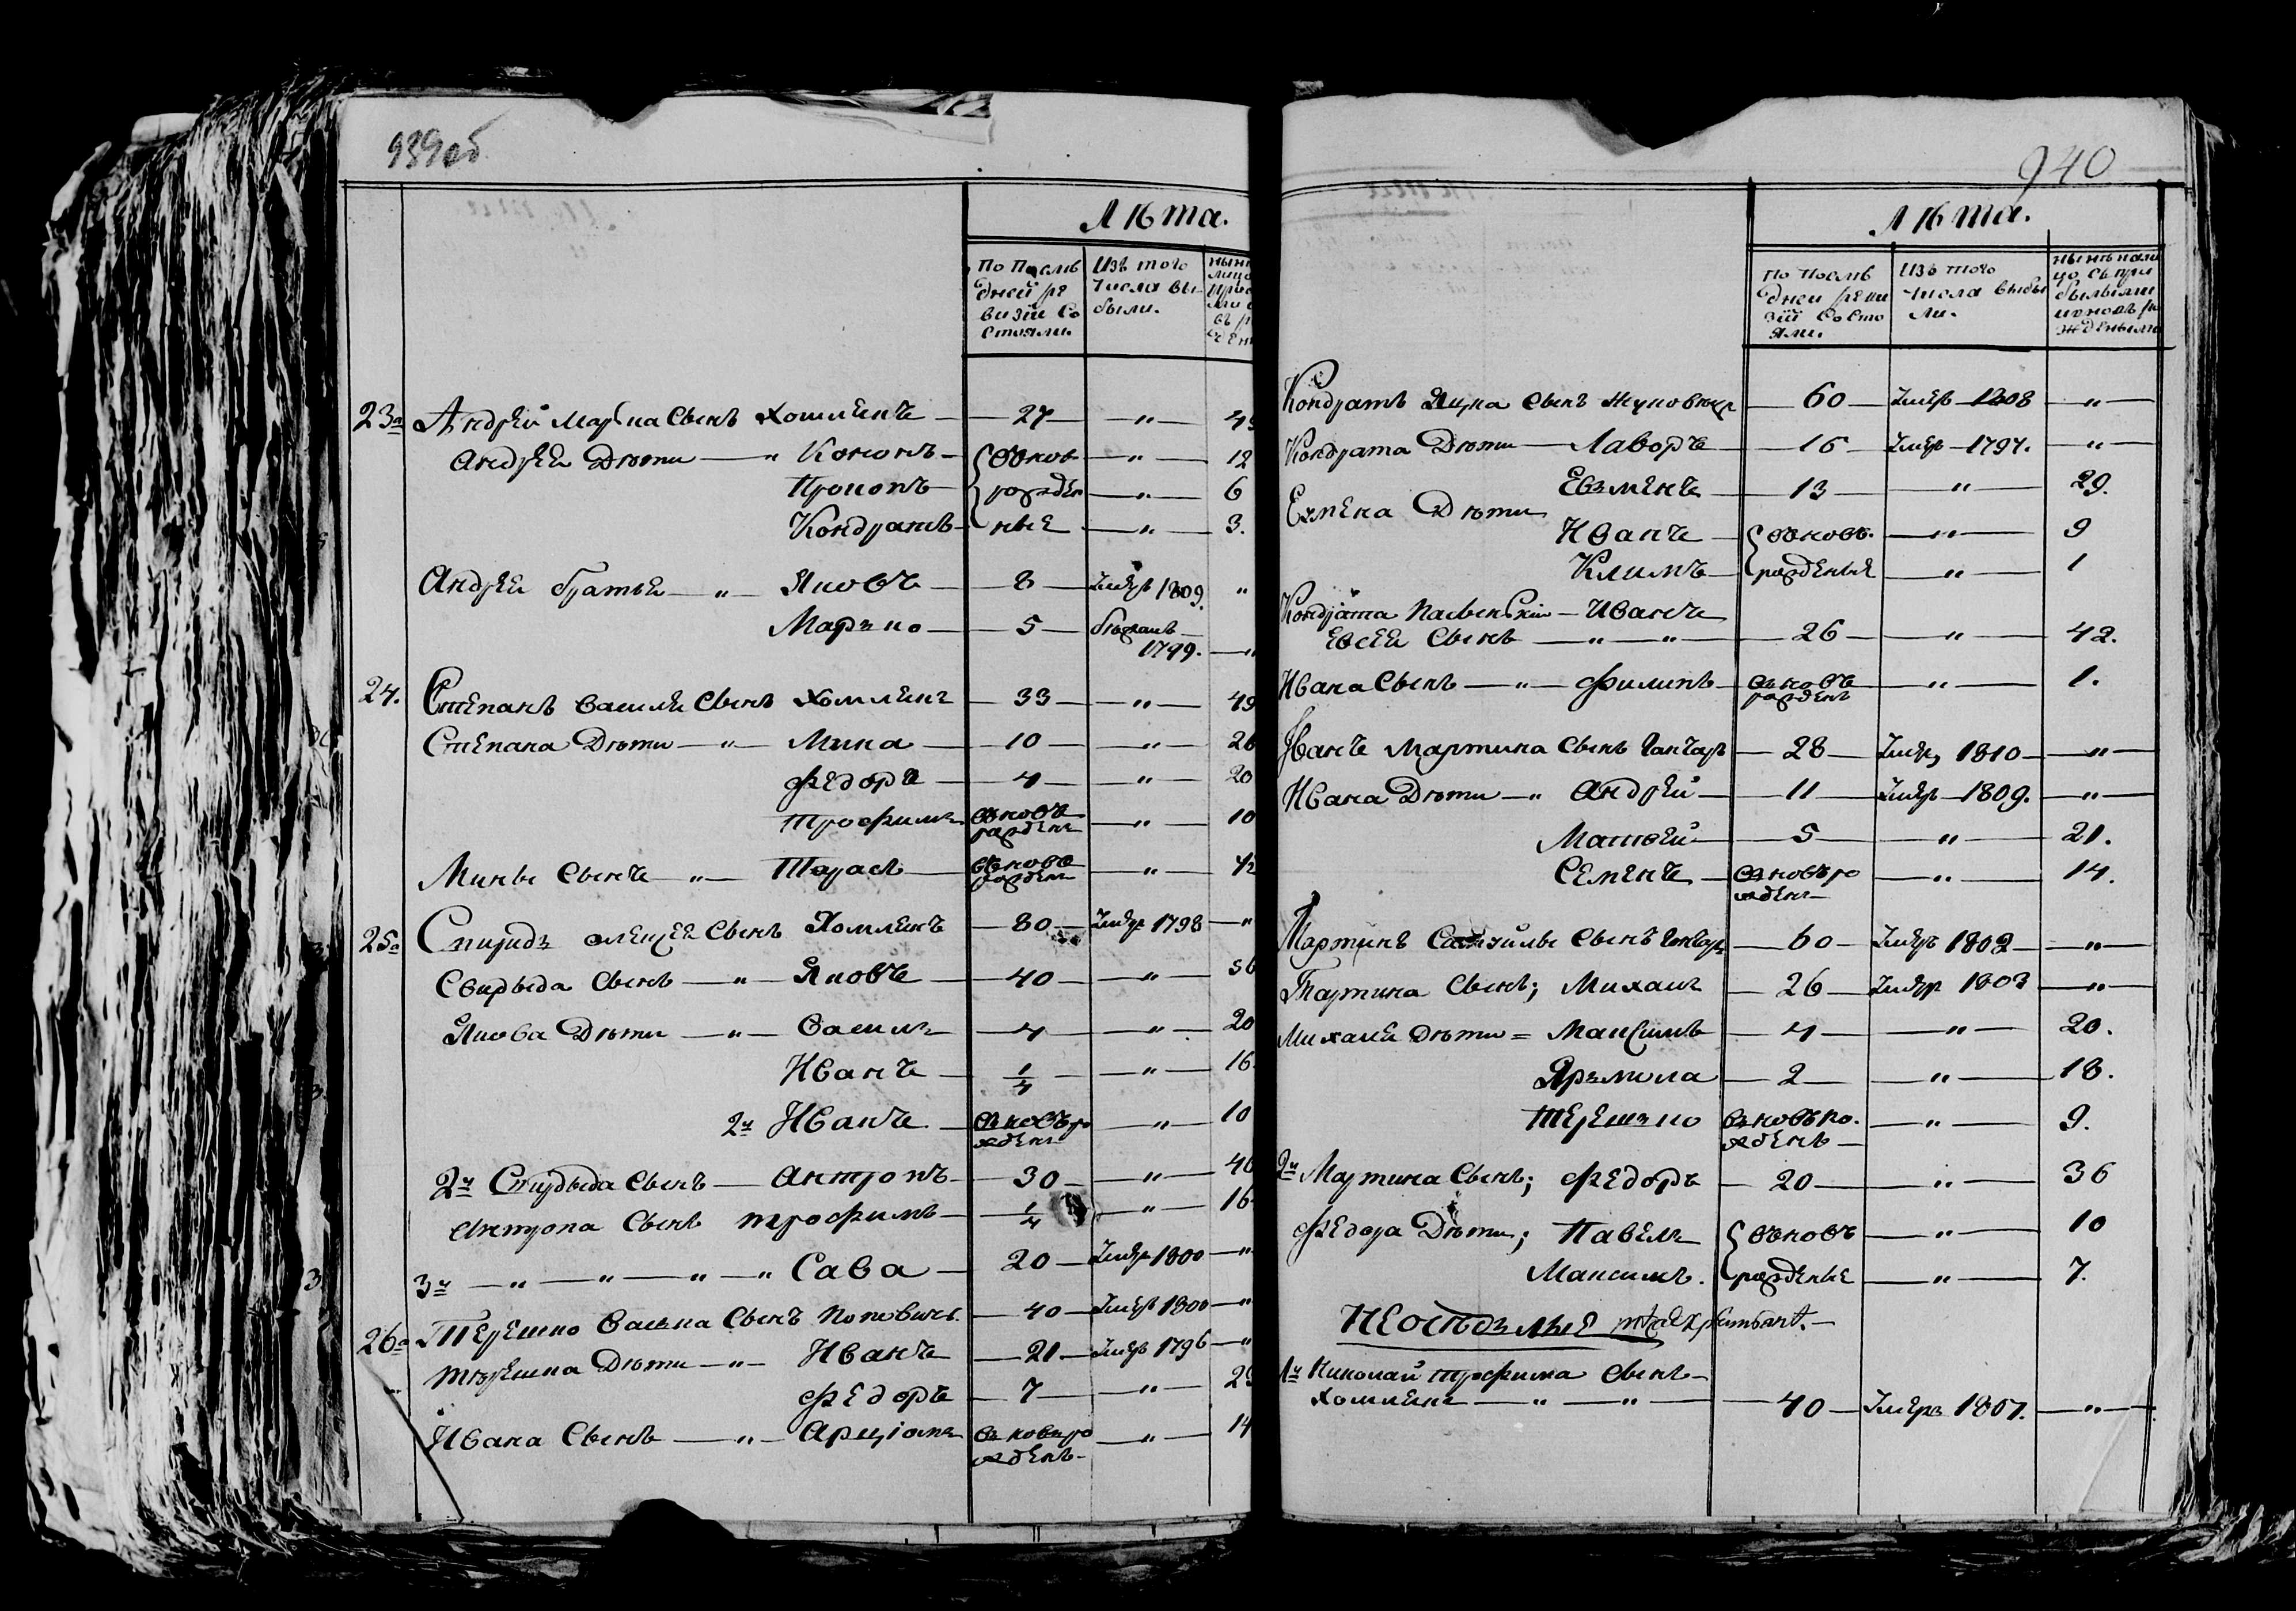 939об
Лѣта.
По Послѣ
дней ре
визіи Со
стояли.
Изъ того
числа вы
были.
23й Андрей Марка Сынъ Хомленъ 27 " 4
Андрея Дѣти " Кононъ { Вънов " 12
Прокопъ рожден " 6
Кондратъ ные " 3.
Андрея братья " Яковъ 8 Умеръ 1809. "
Марко 5 бѣжалъ
1799. "
24. Степанъ Василя Сынъ Хомленъ 33 " 49
Степана Дѣти " Мина 10 " 26
Федоръ 4 " 20
Трофимъ Вновъ
рожденъ " 10
Мины Сынъ " Тарасъ Вновъ
рожденъ "
25й Спиридъ Алексея Сынъ Хомленъ 80 Умеръ 1798 "
Свирыда Сынъ " Яковъ 40 " 56
Якова Дѣти " Василь 4 " 20
Иванъ 1/4 " 16.
2й Иванъ Вновъ ро
жденъ " 10
2й Спирыда Сынъ Антонъ 30 " 46
Антона Сынъ Трофимъ 1/4 " 16
3й " " " " Сава 20 Умеръ 1800 "
26й Терешко Васька Сынъ Поповичъ. 40 Умеръ 1800 "
Терешка Дѣти " Иванъ 21 Умеръ 1796 "
Федоръ 7 " 2
Ивана Сынъ " Арціомъ Вновъ ро
жденъ " 14
940
Лѣта.
По Послѣ
дней реви
зіи Состо
яли.
Изъ того
числа выбы
ли.
нынѣ нали
цо, съ при
былыми
и новъ ро
ждеными
Кондратъ Яцка Сынъ 60 Умеръ 1808 "
Кондрата Дѣти Лаворъ 16 Умеръ 1797. "
Езменъ 13 " 29.
Езмена Дѣти
Иванъ { Вновъ. " 9
Климъ рожденые " 1
Кондрата Иванъ
Евсея Сынъ " " 26 " 42.
Ивана Сынъ " Филипъ Вновъ
рожденъ " 1.
Иванъ Мартина Сынъ Ганчар 28 Умеръ 1810 "
Ивана Дѣти " Андрей 11 Умеръ 1809. "
Матвей 5 " 21.
Семенъ Вновъ ро
жденъ " 14.
Мартинъ Сынъ Ганчар 60 Умеръ 1802 "
Мартина Сынъ; Михаил 26 Умеръ 1803 "
Михаила Дѣти = Максимъ 4 " 20.
Яремола 2 " 18.
Терешко Вновъ ро.
жденъ " 9.
2й Мартина Сынъ; Федоръ 20 " 36
Федора Дѣти; Павелъ { Вновъ " 10
Максимъ. рожденые " 7.
Неоседлые
1й Николай Трофима Сынъ
Хомленъ " " 40 Умеръ 1807. "